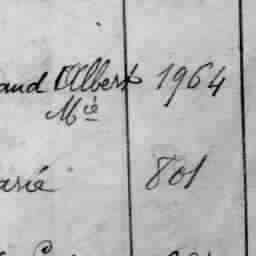 and Albert 1964
Mié
arié 801